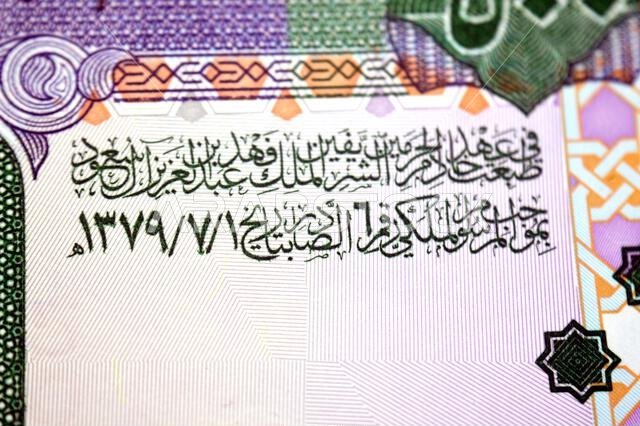 طبعت في عهد خادم الحرمين الشريفين الملك فهد بن عبد العزيز آل سعود
بموجب المرسوم الملكي رقم ٦ الصادر بتاريخ ١٣٧٩/٧/١هـ